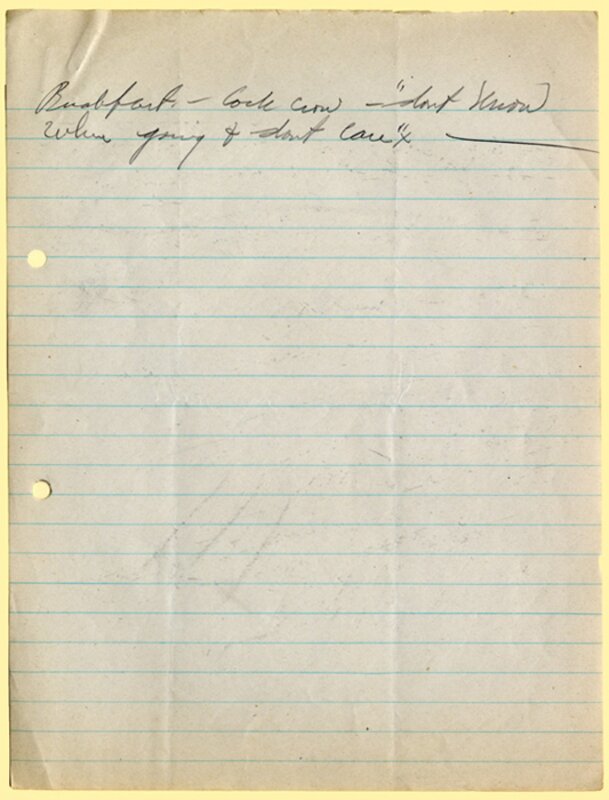 Breakfast. - Cock crow - "dont know
when going & dont care"x